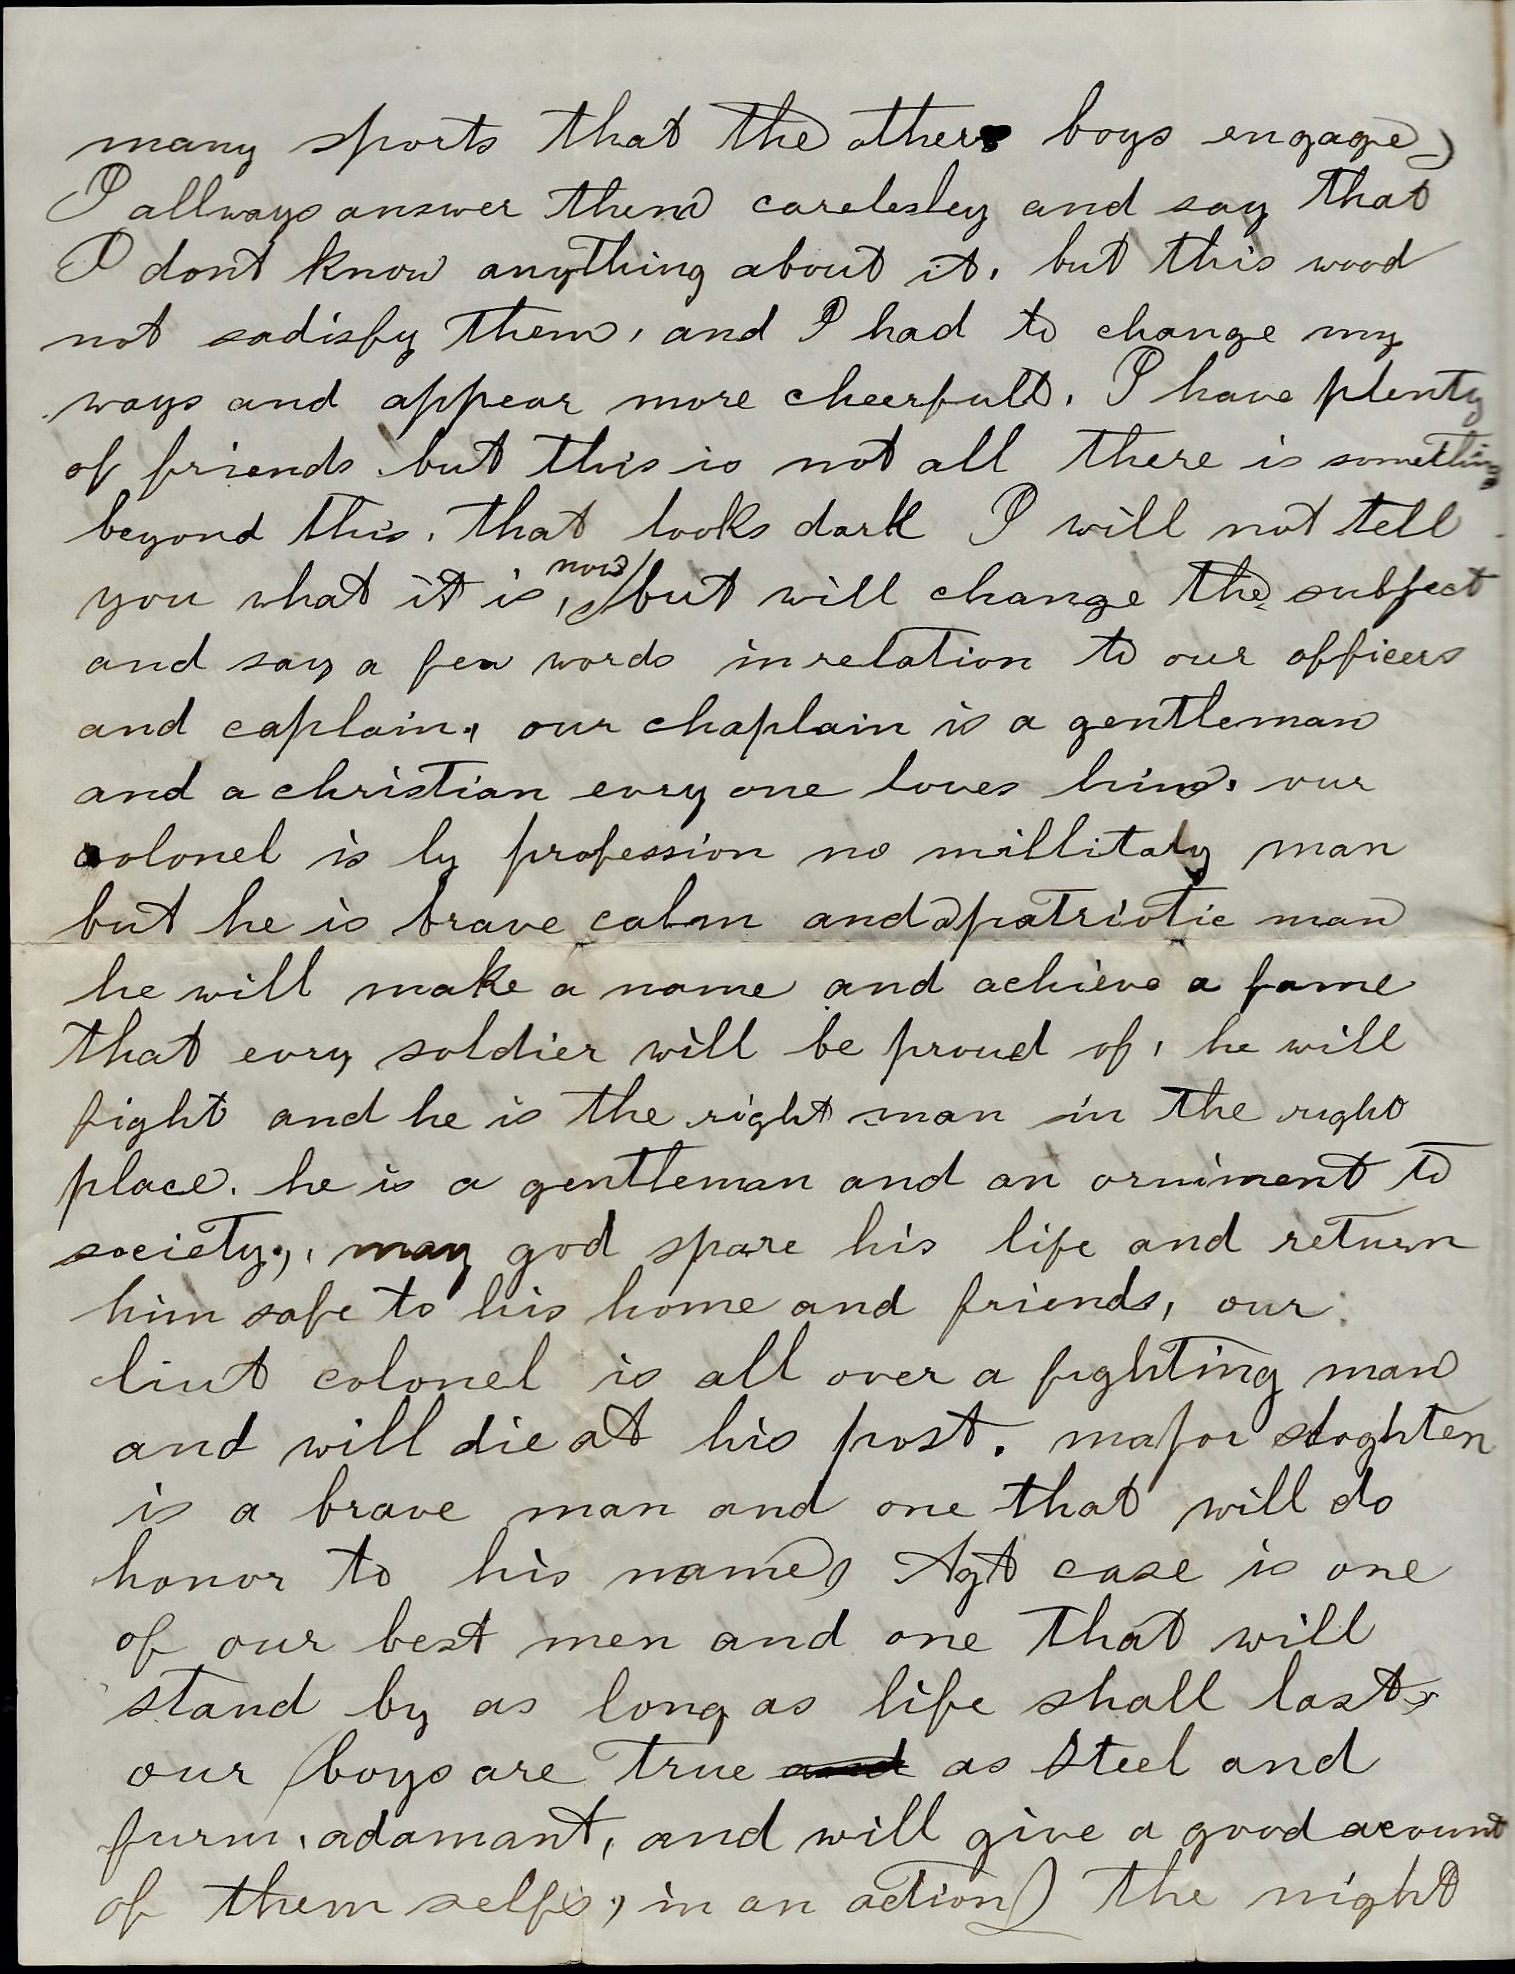 many sports that the other boys engage
I allways answer them carelesley and say that
I dont know anything about it. but this wood
not sadisfy them, and I had to change my
ways and appear more cheerfull. I have plenty
of friends but this is not all there is something
beyond this. that looks dark I will not tell
you what it is, now but will change the subject
and say a few words in relation to our officers
and caplain., our chaplain is a gentleman
and a christian evry one loves him. our
colonel is by profession no millitaly man
but he is brave calm and a patriotic man
he will make a name and achieve a fame
that evry soldier will be proud of, he will
fight and he is the right man in the right
place. he is a gentleman and an orniment to
society., may god spare his life and return
him safe to his home and friends, our
liut colonel is all over a fighting man
and will die at his post. major stoghten
is a brave man and one that will do
honor to his name, Agt case is one
of our best men and one that will
stand by as long as life shall last
our boys are true and as steel and
furm, adamant, and will give a good acount
of them selfs, in an action) the night